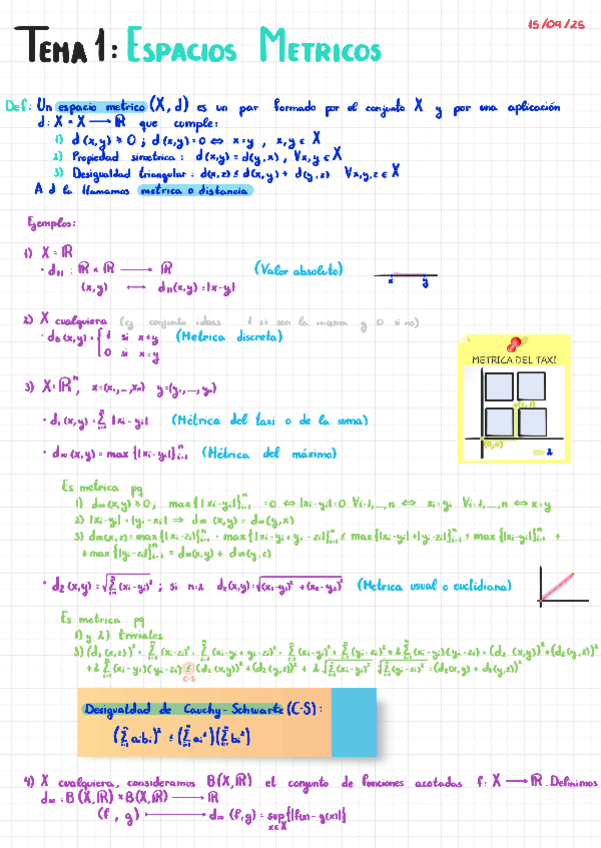 15/09/25
TEMA 1: ESPACIOS METRICOS
Def: Un espacio metrico (X, d) es un par formado por el conjunto X y por una aplicación
d: X × X → ℝ que cumple:
1) d(x,y) ≥ 0 ; d(x,y)=0 ⇔ x=y , x,y ∈ X
2) Propiedad simetrica: d(x,y) = d(y,x) , ∀x,y ∈ X
3) Desigualdad triangular: d(x,z) ≤ d(x,y) + d(y,z) ∀x,y,z ∈ X
A d la llamamos metrica o distancia
Ejemplos:
1) X = ℝ
· d₁₁ : ℝ × ℝ → ℝ (Valor absoluto)
(x,y) ↔ d₁₁(x,y) = |x-y|
x y
2) X cualquiera (ej conjunto ideas 1 si son la misma y 0 si no)
· d₀(x,y) = { 1 si x≠y (Metrica discreta)
0 si x=y
METRICA DEL TAXI
(1,1)
(0,0)
2
3) X=ℝⁿ, x=(x₁,...,xₙ) y=(y₁,...,yₙ)
· d₁(x,y) = Σ |xi-yi| (Métrica del taxi o de la suma)
· d∞(x,y) = max{|xi-yi|}ⁿᵢ₌₁ (Métrica del máximo)
Es metrica pq
1) d∞(x,y) ≥ 0; max{|xi-yi|}ⁿᵢ₌₁ = 0 ⇔ |xi-yi|=0 ∀i=1,...,n ⇔ xi=yi ∀i=1,...,n ⇔ x=y
2) |xi-yi| = |yi-xi| ⇒ d∞(x,y) = d∞(y,x)
3) d∞(x,z) = max{|xi-zi|}ⁿᵢ₌₁ = max{|xi-yi+yi-zi|}ⁿᵢ₌₁ ≤ max{|xi-yi|+|yi-zi|}ⁿᵢ₌₁ ≤ max{|xi-yi|}ⁿᵢ₌₁ +
+ max{|yi-zi|}ⁿᵢ₌₁ = d∞(x,y) + d∞(y,z)
· d₂(x,y) = √Σ(xi-yi)² ; si n=2 d₂(x,y) = √(x₁-y₁)² + (x₂-y₂)² (Metrica usual o euclidiana)
Es metrica pq
1) y 2) triviales
3) (d₂(x,z))² = Σ(xi-zi)² = Σ(xi-yi+yi-zi)² = Σ(xi-yi)² + Σ(yi-zi)² + 2Σ(xi-yi)(yi-zi) = (d₂(x,y))² + (d₂(y,z))² +
+ 2Σ(xi-yi)(yi-zi) ≤ (d₂(x,y))² + (d₂(y,z))² + 2√Σ(xi-yi)² √Σ(yi-zi)² = (d₂(x,y) + d₂(y,z))²
C-S
Desigualdad de Cauchy-Schwartz (C-S):
(Σ aibi)² ≤ (Σ ai²)(Σ bi²)
4) X cualquiera, consideramos B(X,ℝ) el conjunto de funciones acotadas f: X → ℝ. Definimos
d∞: B(X,ℝ) × B(X,ℝ) → ℝ
(f , g) ↦ d∞(f,g) = sup{|f(x)-g(x)|}
x∈X